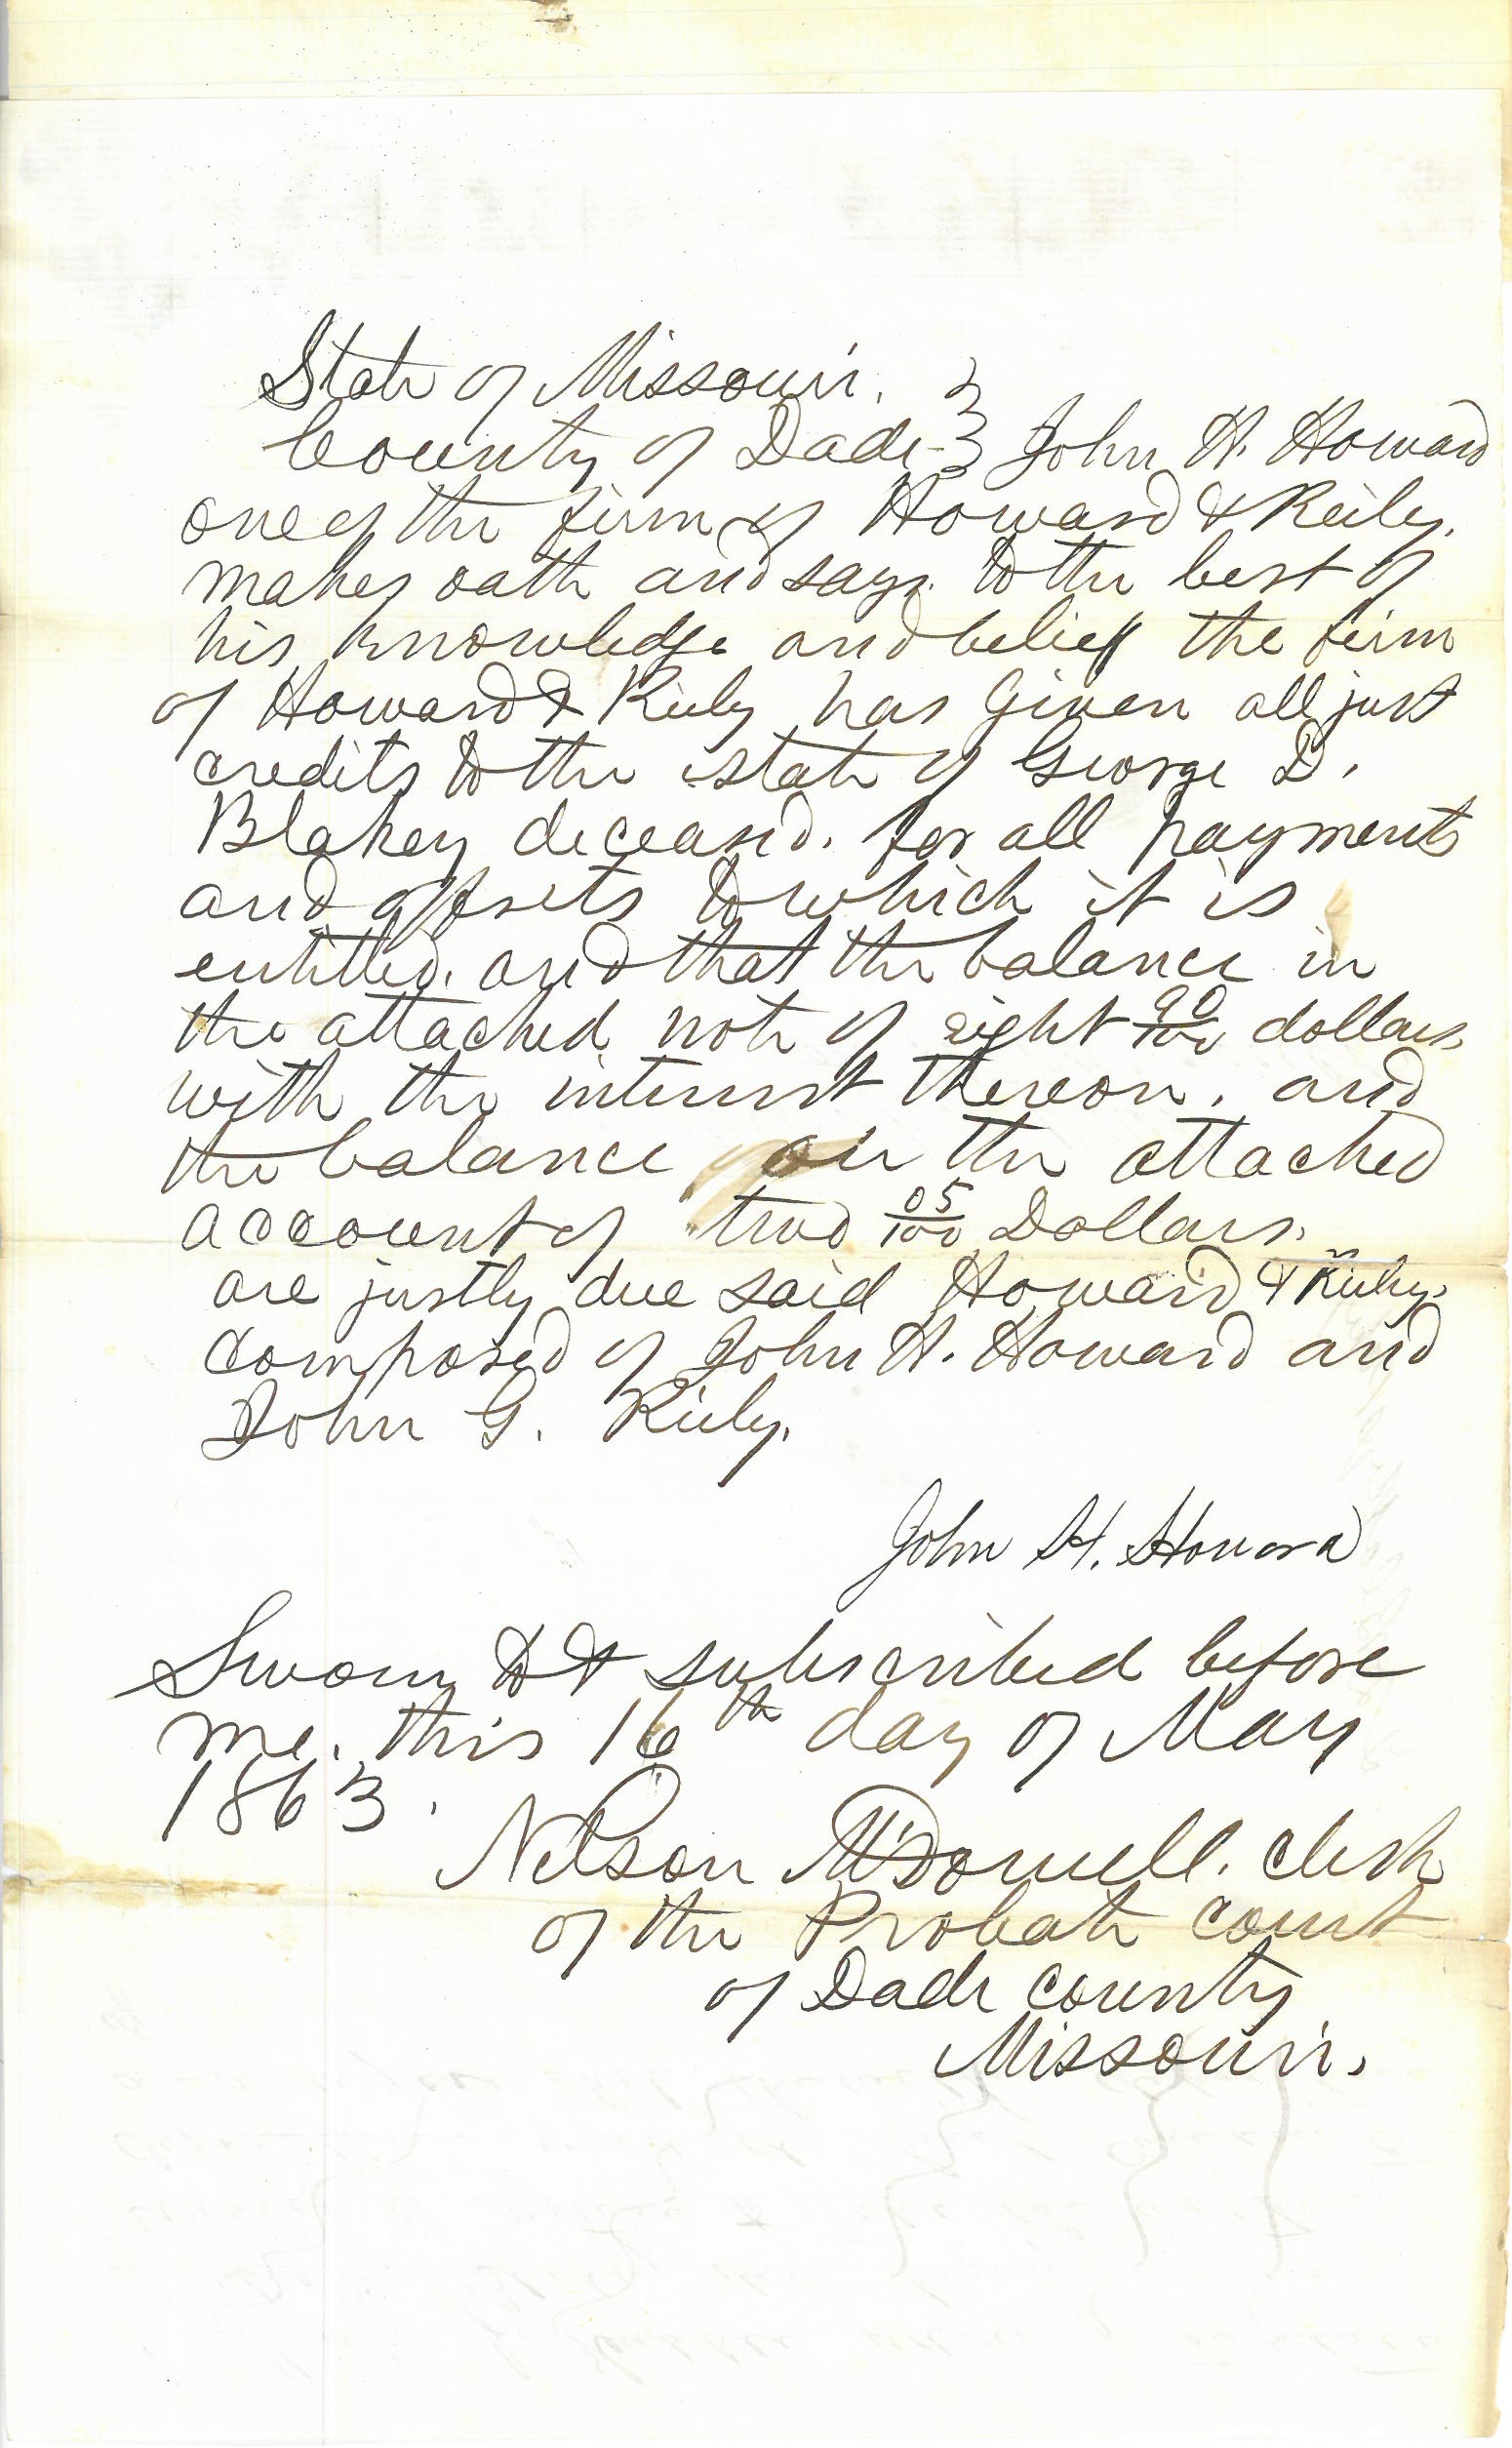 State of Missouri.
County of Dade } John H. Howard
one of the firm of Howard & Riely.
makes oath and says. to the best of
his knowledge and belief the firm
of Howard & Riely has given all just
credits to the estate of George D.
Blakey deceased. for all payments
and offsets to which it is
entitled. and that the balance in
the attached note of eight 90/100 dollars
with the interest thereon. and
the balance on the attached
account of two 05/100 Dollars.
are justly due said Howard & Riely.
composed of John H. Howard and
John G. Riely.
John H. Howard
Sworn to & subscribed before
me. this 16th day of May
1863.
Nelson McDowell. clerk
of the Probate court
of Dade county
Missouri.